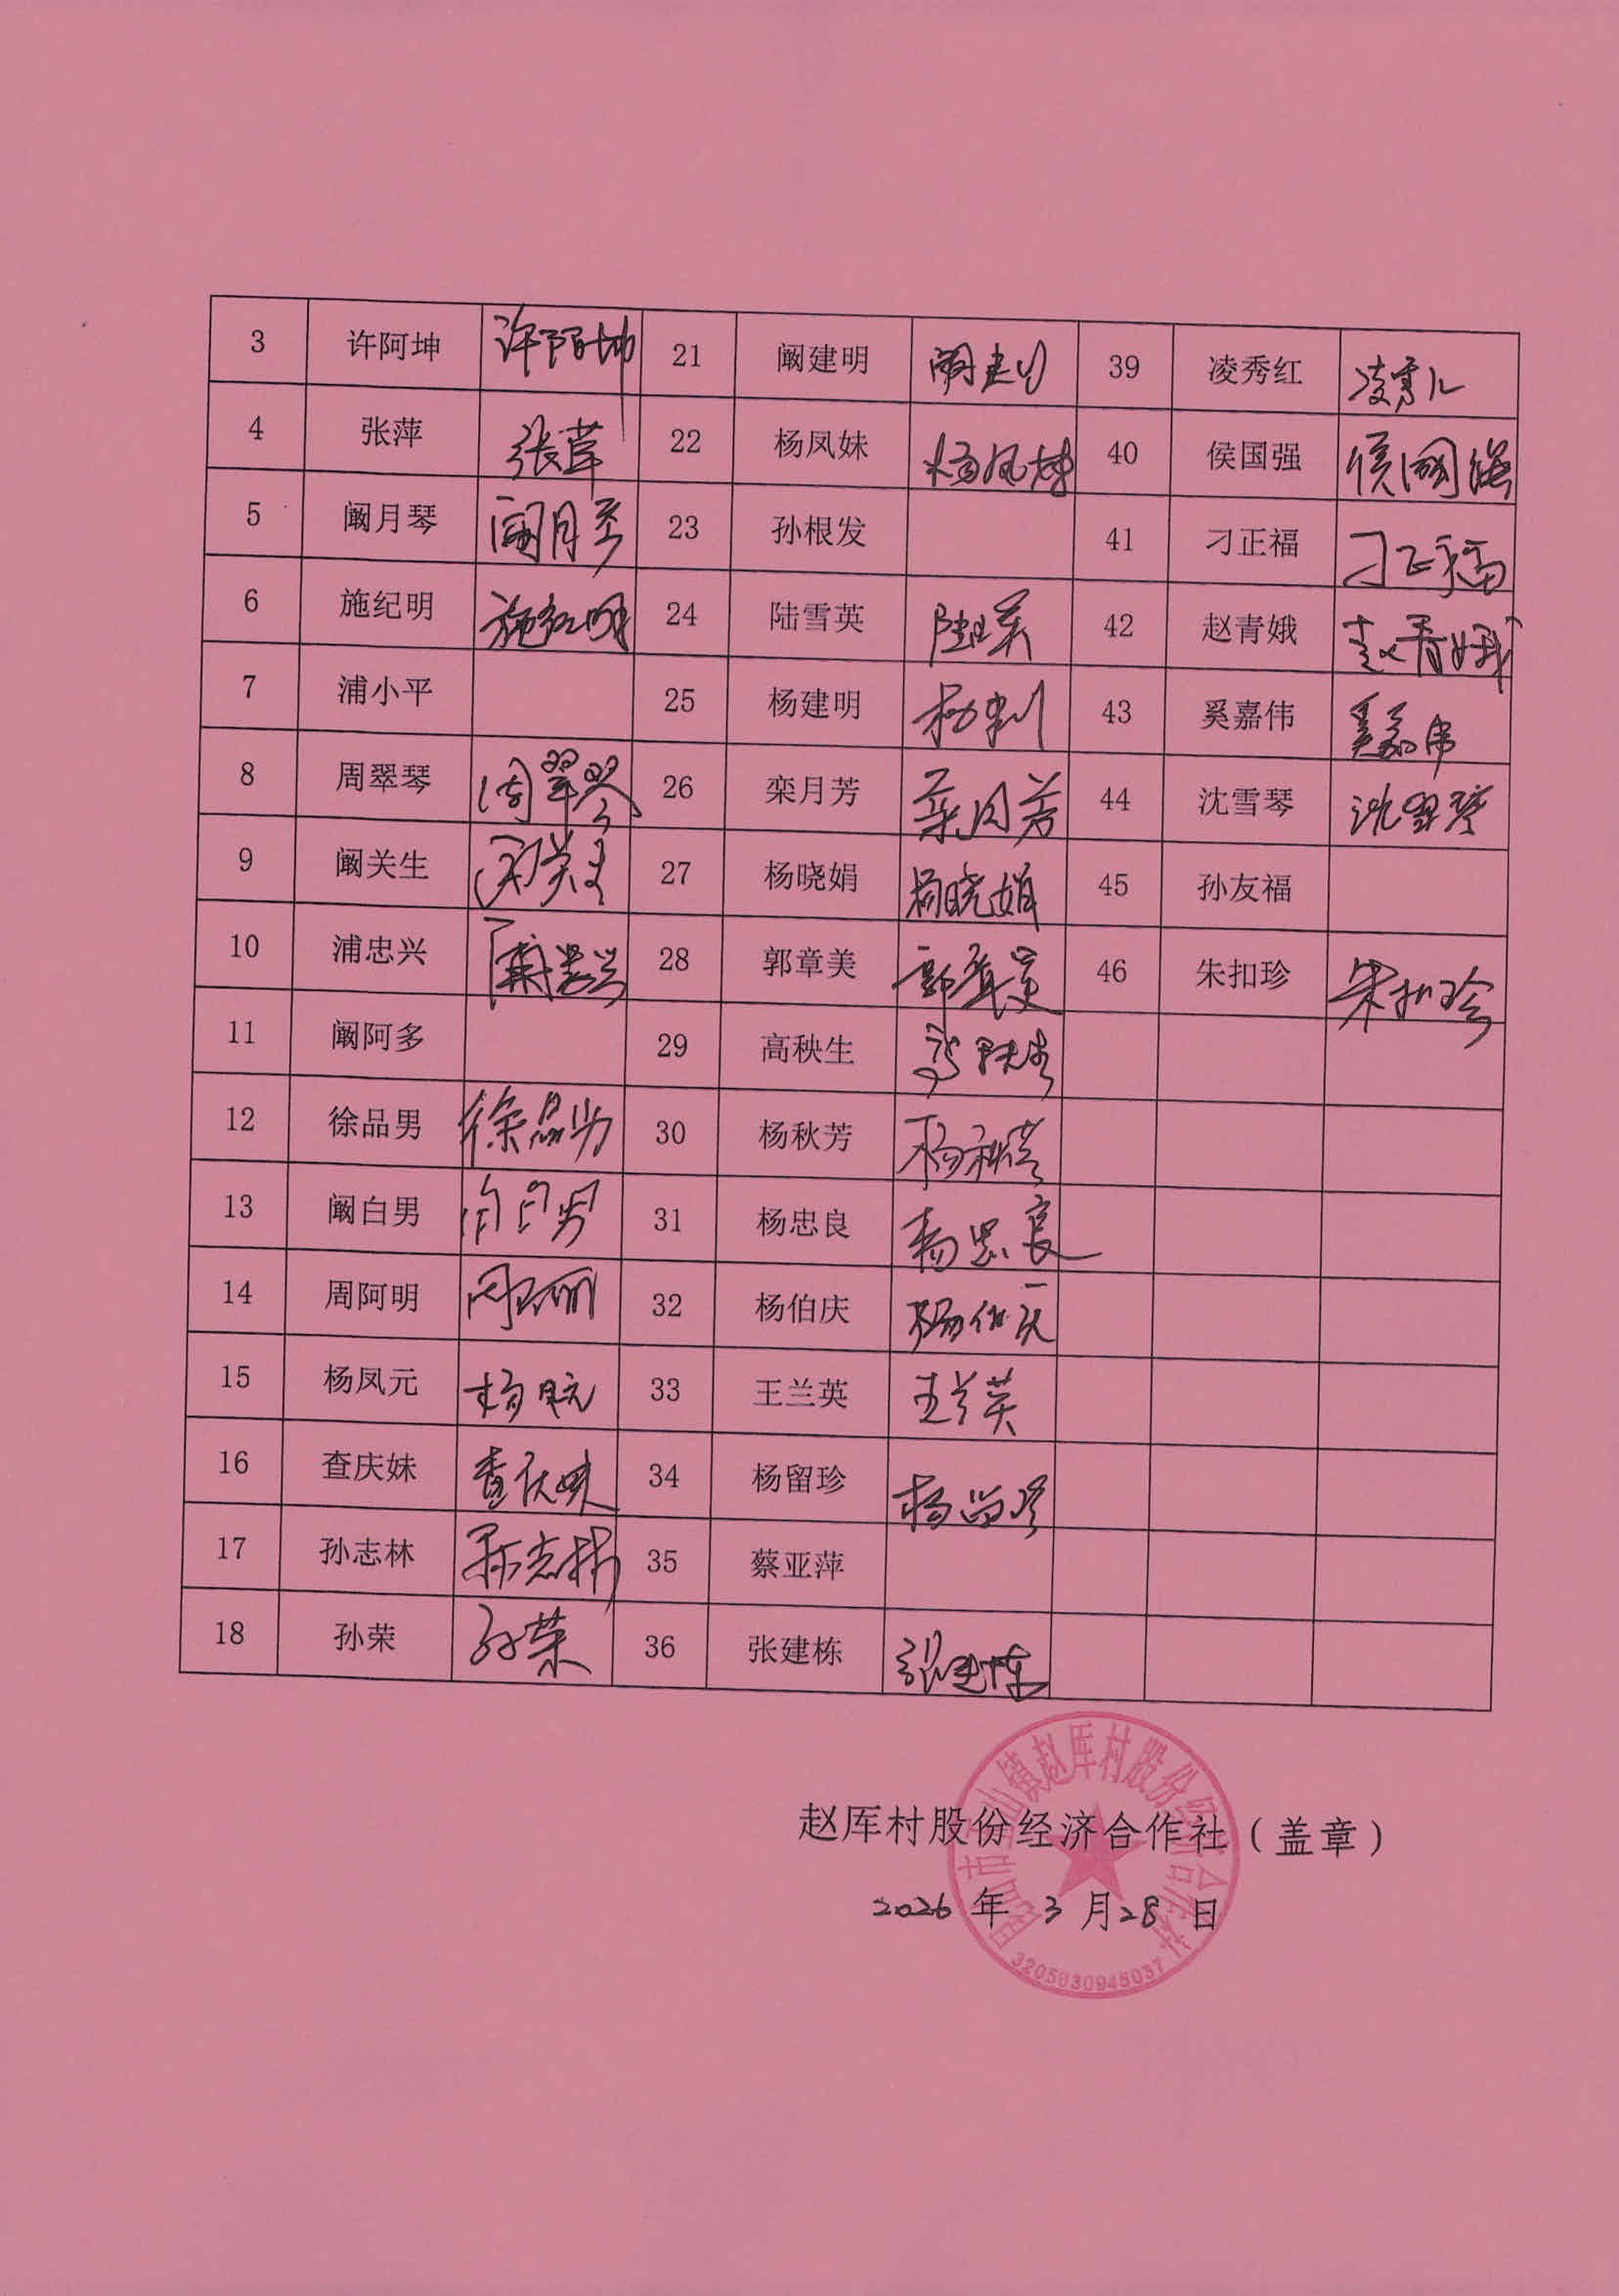 3 许阿坤 许阿坤 21 阚建明 阚建明 39 凌秀红 凌秀红
4 张萍 张萍 22 杨凤妹 杨凤妹 40 侯国强 侯國强
5 阚月琴 阚月琴 23 孙根发 41 刁正福 刁正福
6 施纪明 施纪明 24 陆雪英 陆雪英 42 赵青娥 赵青娥
7 浦小平 25 杨建明 杨建明 43 奚嘉伟 奚嘉伟
8 周翠琴 周翠琴 26 栾月芳 栾月芳 44 沈雪琴 沈雪琴
9 阚关生 27 杨晓娟 杨晓娟 45 孙友福
10 浦忠兴 浦忠兴 28 郭章美 郭章美 46 朱扣珍 朱扣珍
11 阚阿多 29 高秧生 高秧生
12 徐品男 徐品男 30 杨秋芳 杨秋芳
13 阚白男 31 杨忠良 杨忠良
14 周阿明 周阿明 32 杨伯庆 杨伯庆
15 杨凤元 杨凤元 33 王兰英 王兰英
16 查庆妹 查庆妹 34 杨留珍 杨留珍
17 孙志林 孙志林 35 蔡亚萍
18 孙荣 孙荣 36 张建栋 张建栋
赵厍村股份经济合作社（盖章）
2026 年 3 月 28 日
山镇赵厍村股份经济合作社
3205830945037